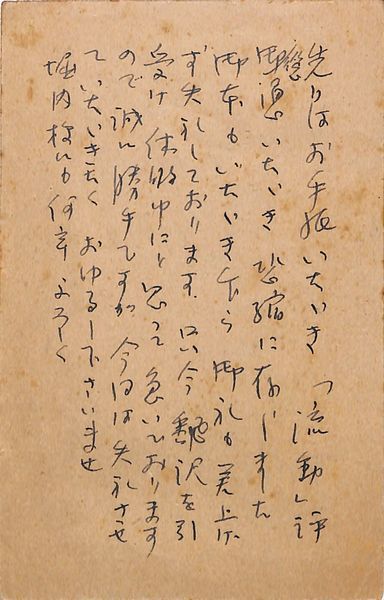 先日はお手紙いただき「流動」誌
御恵いただき 恐縮に存じました
御本もいただき乍ら 御礼も差上げ
ず失礼しております。只今 飜訳を引
受け 休暇中にと思って急いでおります
ので 誠に勝手ですが 今日は失礼させ
ていただきたく おゆるし下さいませ
堀内様にも何卒よろしく